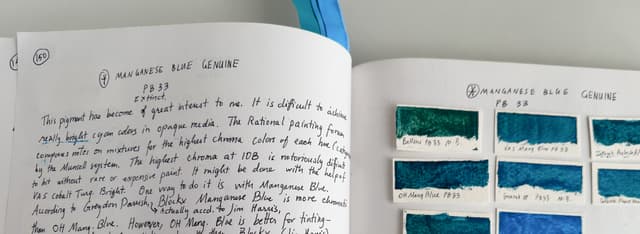 150
MANGANESE BLUE GENUINE
PB 33
Extinct.
This pigment has become of great interest to me. It is difficult to achieve
really bright cyan colors in opaque media. The Rational painting forum
comprises notes on mixtures for the highest chroma colors of each hue
by the Munsell system. The highest chroma at 10B is notoriously difficult
to hit without rare or expensive paint. It might be done with the help of
VAS Cobalt Turq. Bright. One way to do it is with Manganese Blue.
According to Graydon Parrish, Blockx Manganese Blue is more chromatic
actually accd. to Jim Harris,
than OH Mang. Blue. However, OH Mang. Blue is better for tinting-
MANGANESE BLUE GENUINE
PB 33
PB33 M.B.
Mang Blue PB33
OH Mang Blue PB33
PB33 M.B.